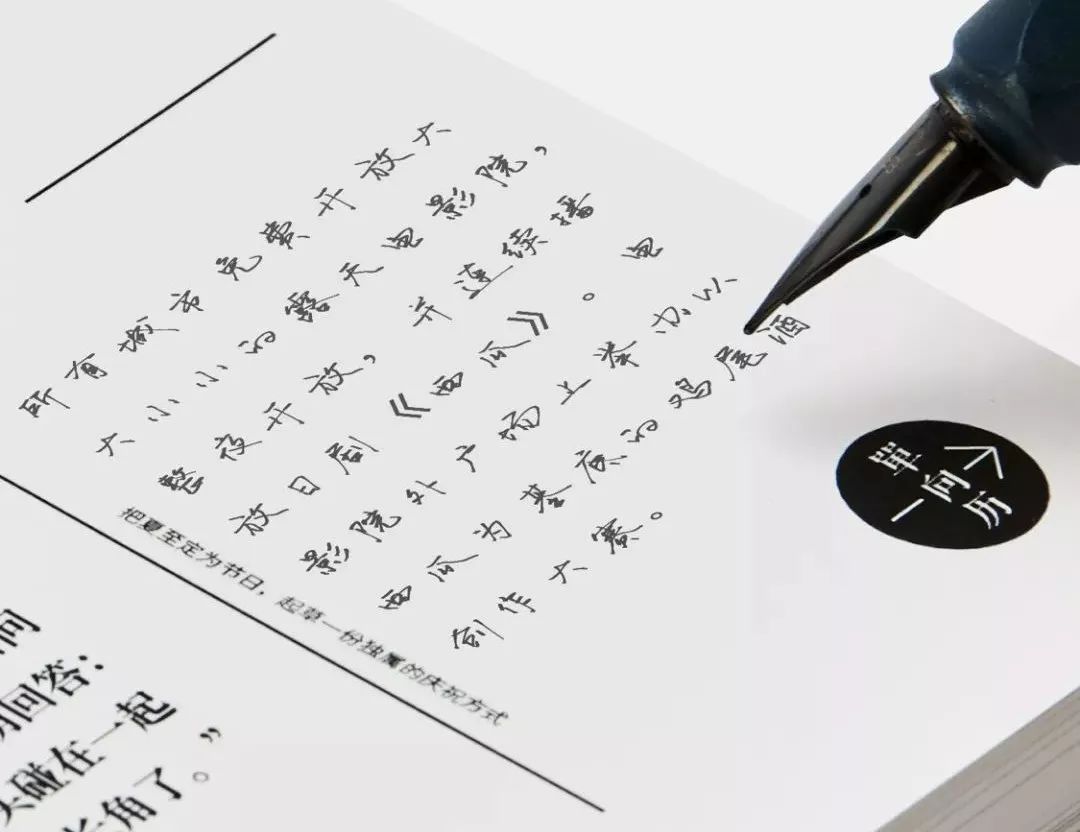 所有城市免费开放大
大小小的露天电影院，
整夜开放，并连续播
放日剧《西瓜》。电
影院外广场上举办以
西瓜为基底的鸡尾酒
创作大赛。
把夏至定为节日，起草一份独属的庆祝方式
問
回答：
碰在一起
角了。”
單向历